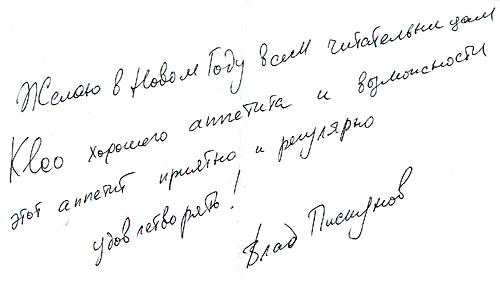 Желаю в Новом Году всем читательницам
Kleo хорошего аппетита и возможности
этот аппетит приятно и регулярно
удовлетворять!
Влад Пискунов